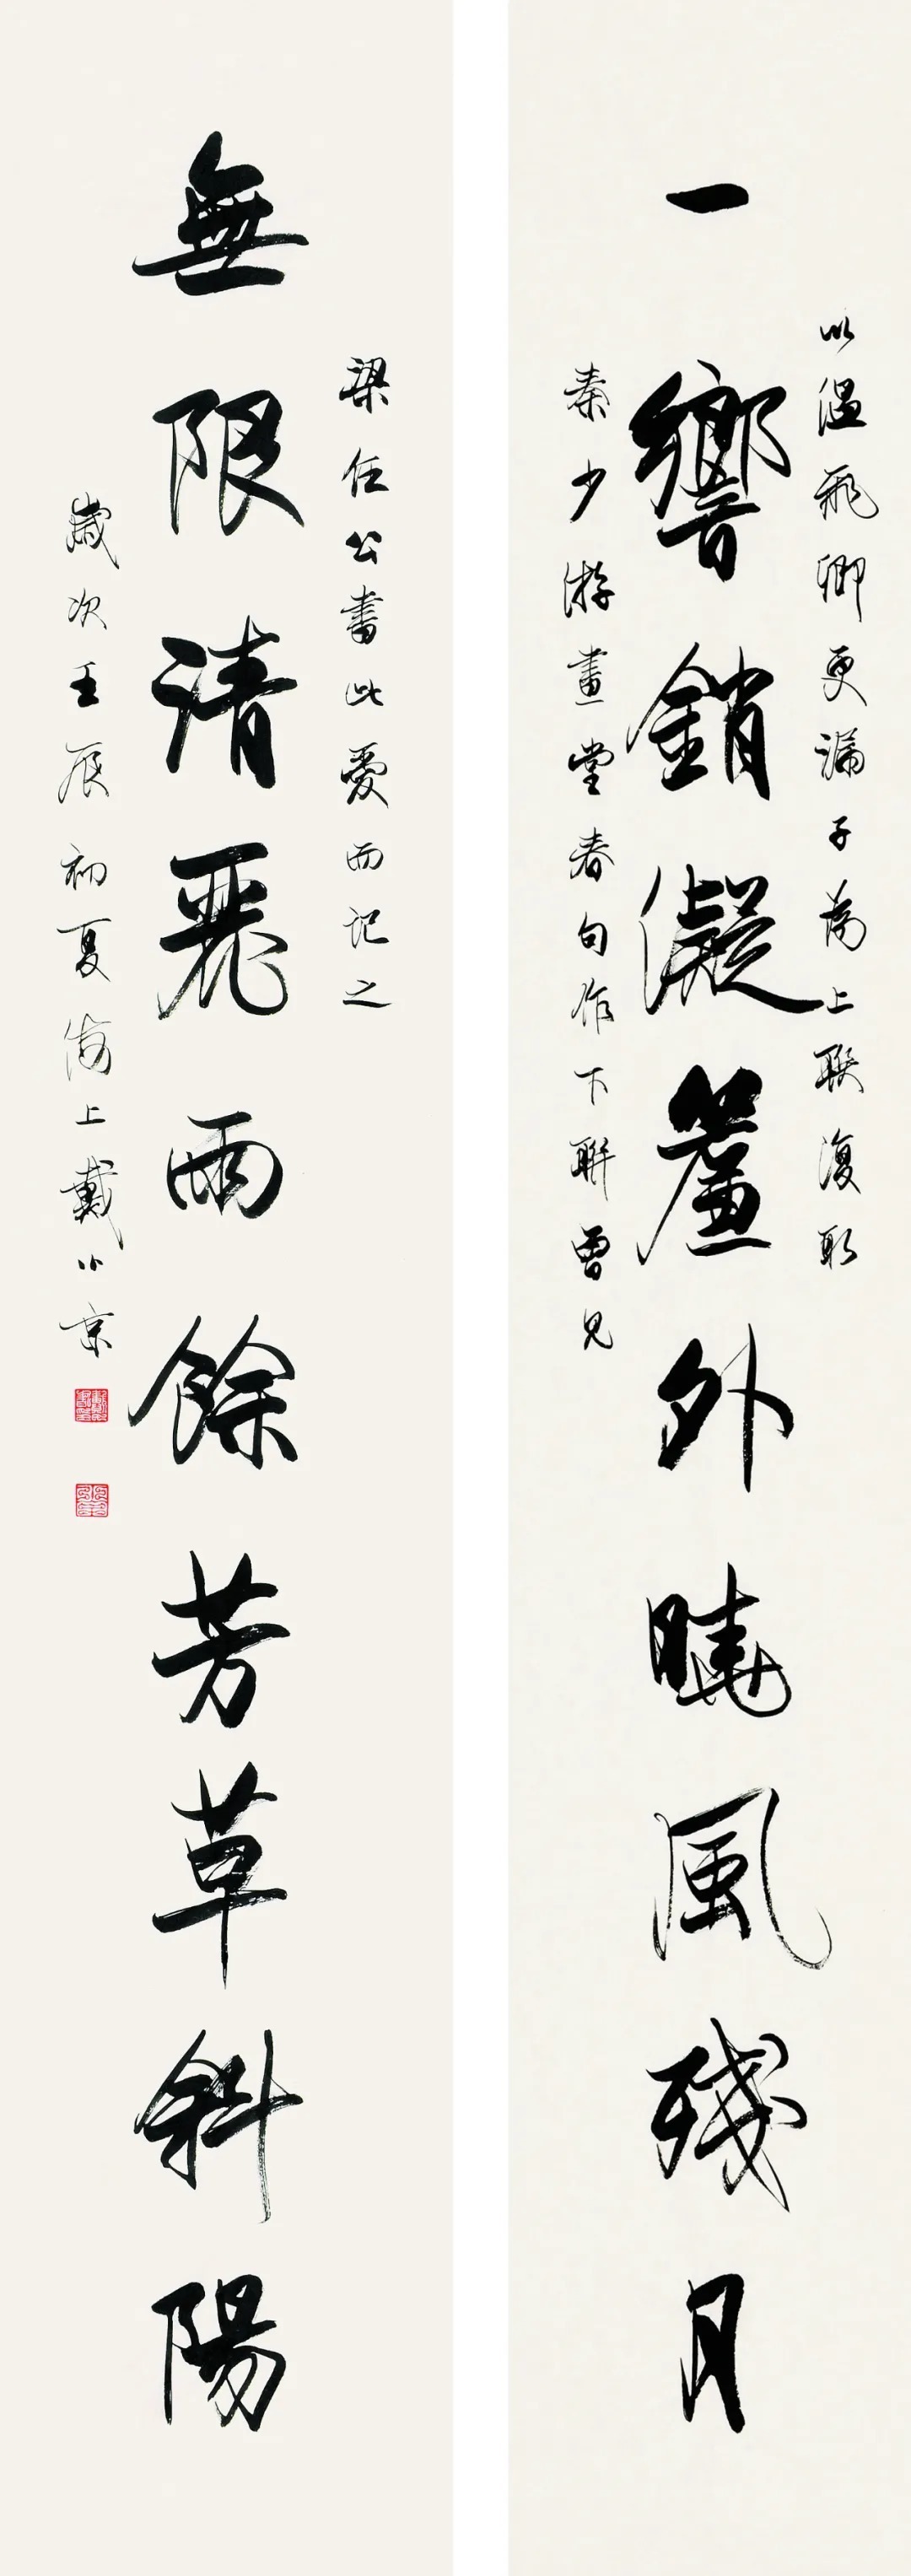 以溫飛卿更漏子為上聯復取
一響銷凝簾外曉風殘月
秦少游畫堂春句作下聯曾見
梁任公書此愛而記之
無限清麗雨餘芳草斜陽
歲次壬辰初夏海上戴小京